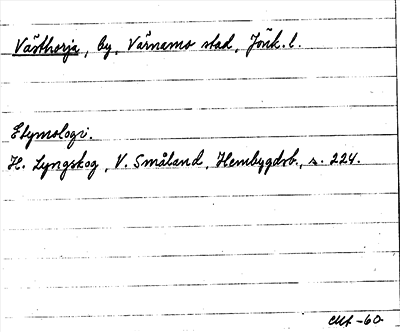 Västhorja, by, Värnamo stad, Jönk. l.
Etymologi.
H. Lyngskog, V. Småland, Hembygdsb., s. 224.
-60